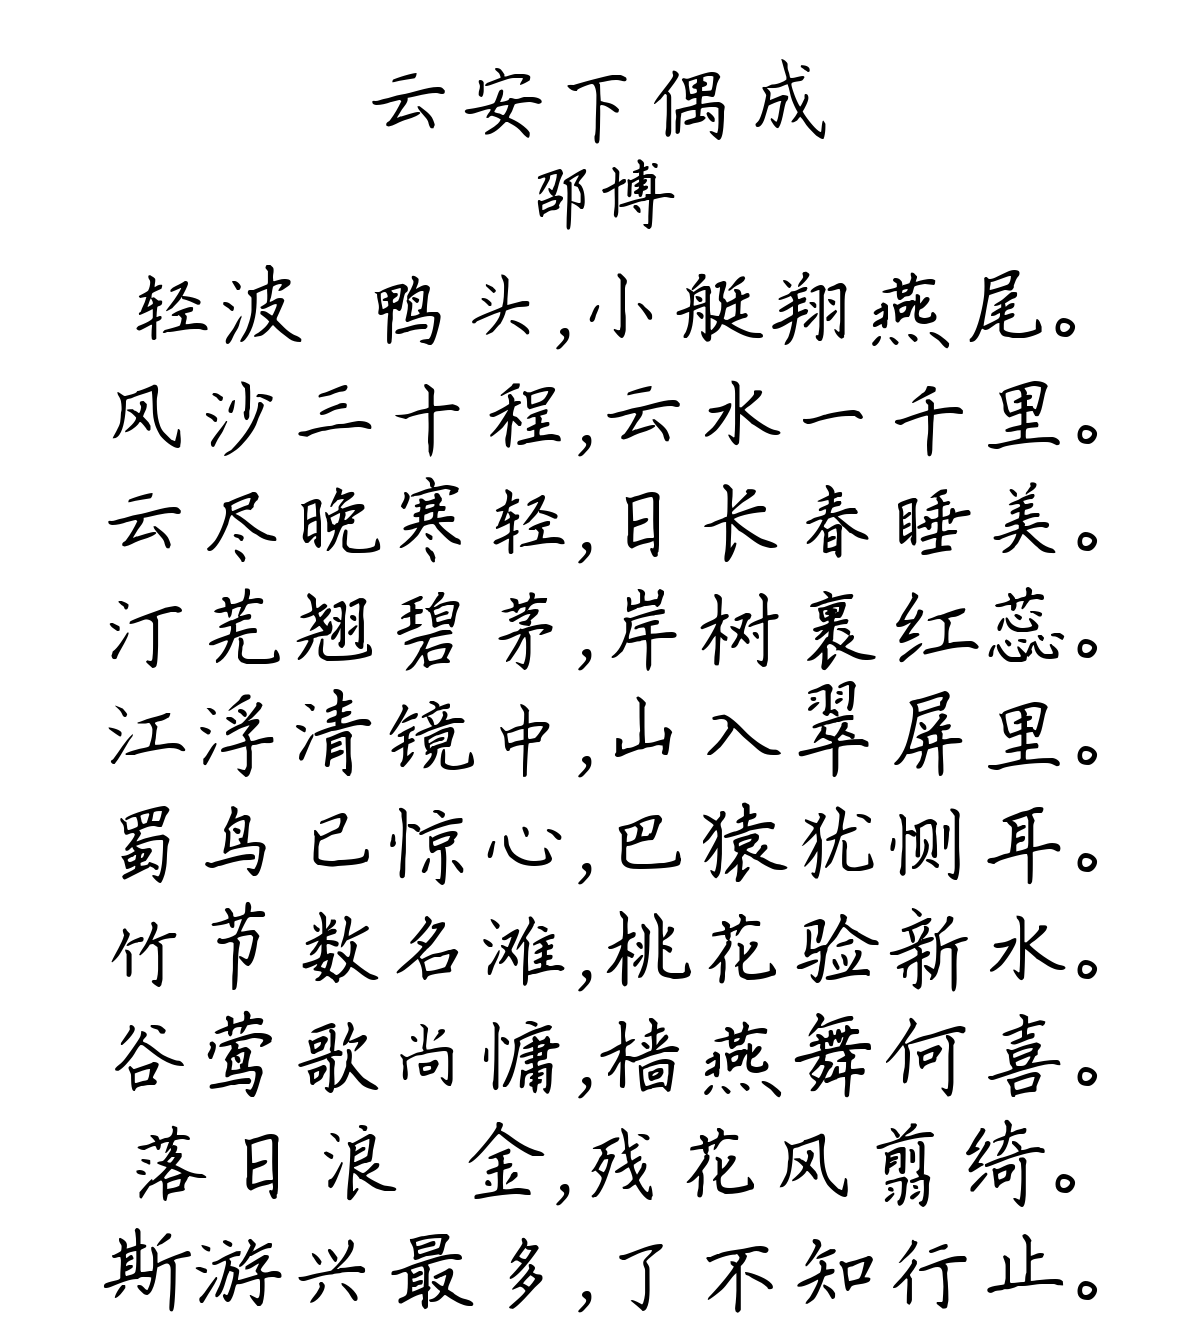 云安下偶成
邵博
轻波 鸭头,小艇翔燕尾。
风沙三十程,云水一千里。
云尽晚寒轻,日长春睡美。
汀芜翘碧茅,岸树裹红蕊。
江浮清镜中,山入翠屏里。
蜀鸟已惊心,巴猿犹恻耳。
竹节数名滩,桃花验新水。
谷莺歌尚慵,樯燕舞何喜。
落日浪 金,残花风剪绮。
斯游兴最多,了不知行止。